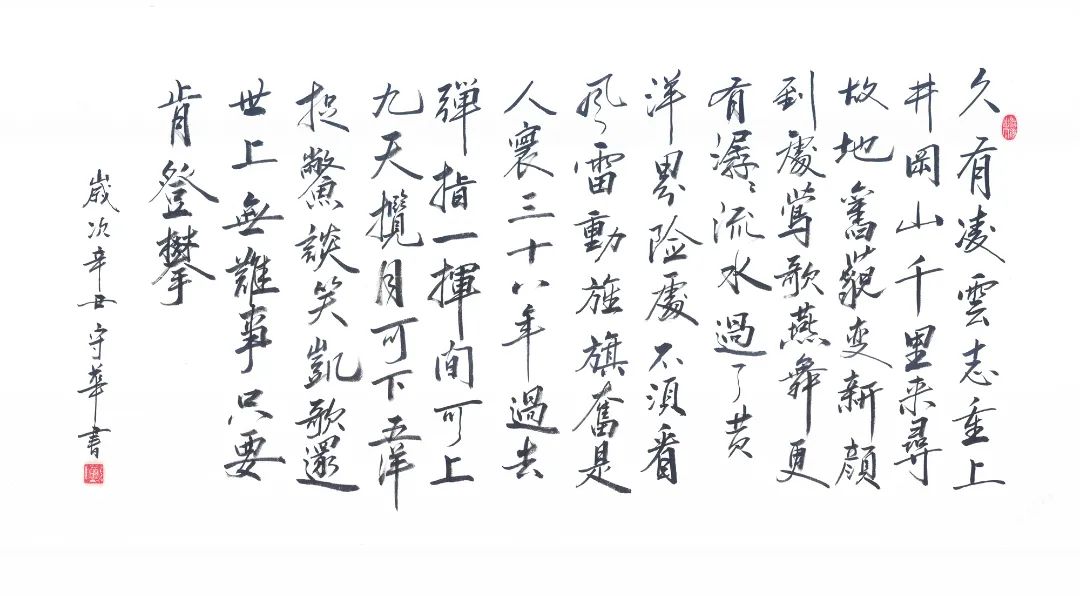 久有凌雲志重上
井岡山千里来尋
故地舊藐变新顔
到處莺歌燕舞更
有潺〻流水過了黄
洋界险處不須看
风雷動旌旗奮是
人寰三十八年過去
彈指一揮间可上
九天揽月可下五洋
捉鳖談笑凱歌還
世上無難事只要
肯登攀
歲次辛丑守華書